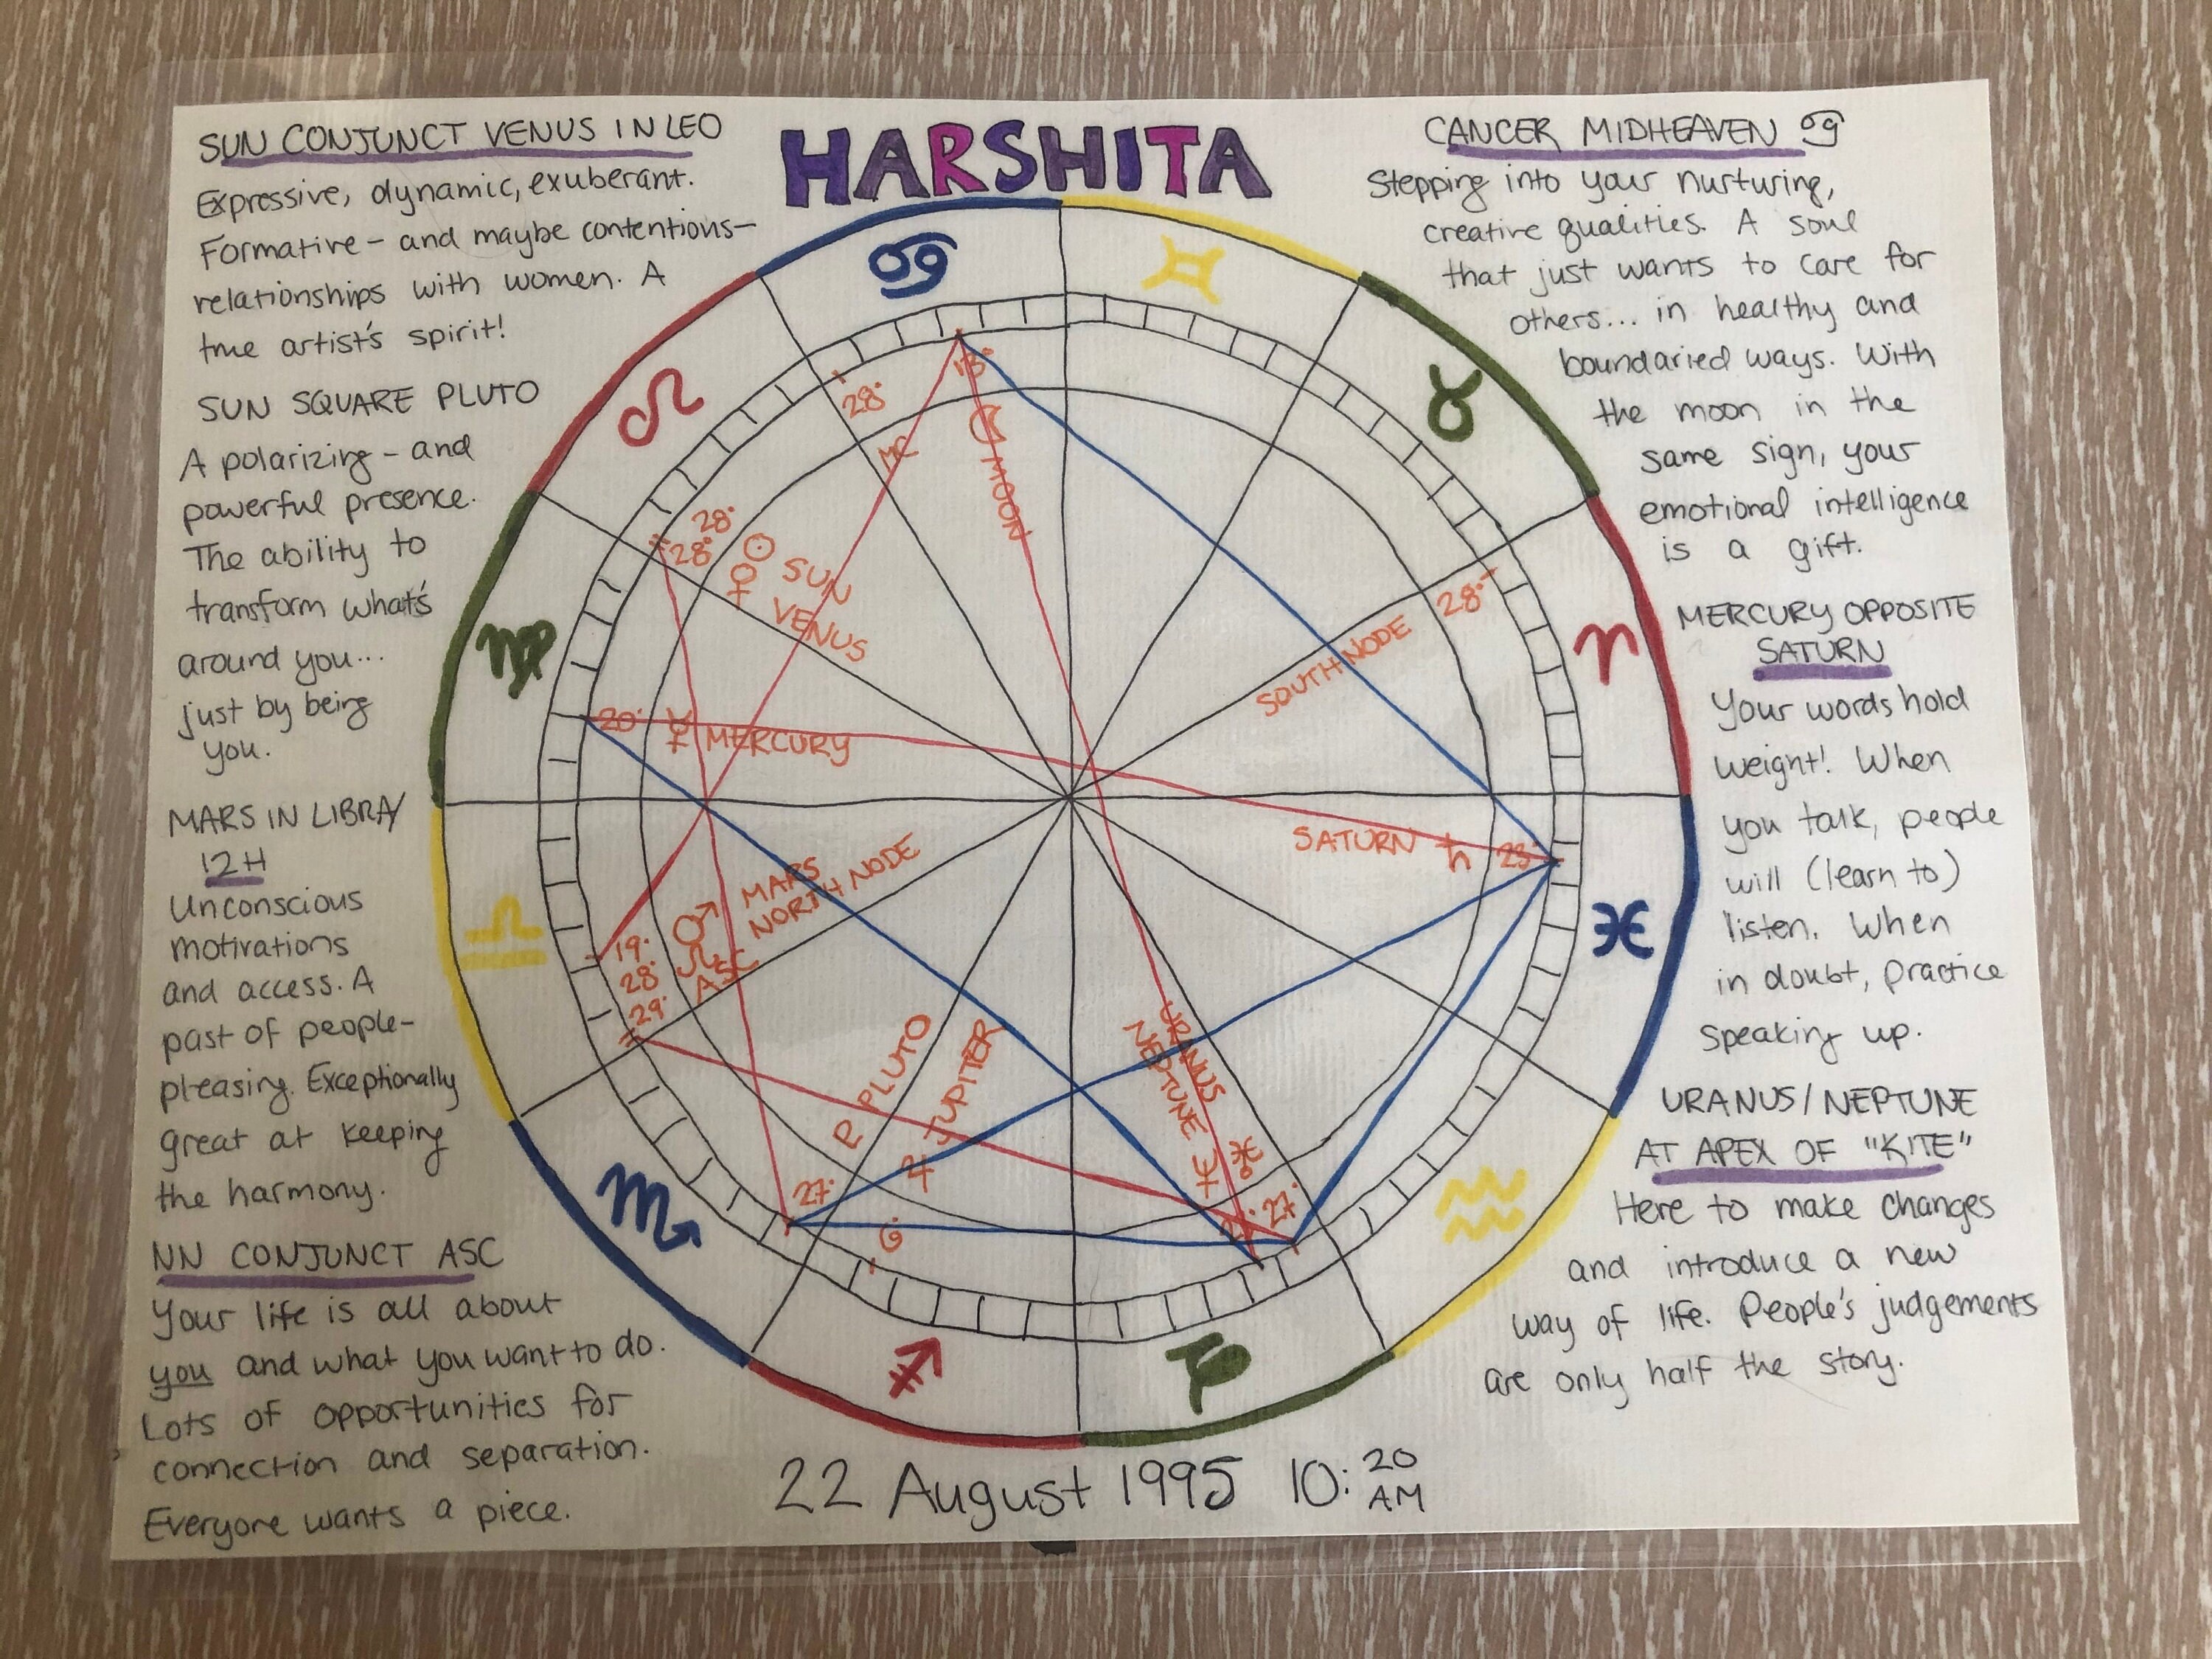 HARSHITA
SUN CONJUNCT VENUS IN LEO
Expressive, dynamic, exuberant.
Formative - and maybe contentions-
relationships with women. A
true artist's spirit!
SUN SQUARE PLUTO
A polarizing - and
powerful presence.
The ability to
transform what's
around you...
just by being
you.
MARS IN LIBRA/
12H
Unconscious
motivations
and access. A
past of people-
pleasing. Exceptionally
great at keeping
the harmony.
NN CONJUNCT ASC
Your life is all about
you and what you want to do.
Lots of opportunities for
connection and separation.
Everyone wants a piece.
♋
♊
♌
♉
♍
♈
♎
♓
♏
♒
♐
♑
13°
☽ MOON
28°
MC
28° ☉ SUN
28° ♀ VENUS
20° ☿ MERCURY
SOUTH NODE 28°
SATURN ♄ 23°
19° ♂ MARS
28° ☊ NORTH NODE
29° ASC
27° PLUTO
6° ♃ JUPITER
URANUS ♅ 27°
NEPTUNE ♆
22 August 1995 10:20 AM
CANCER MIDHEAVEN ♋
Stepping into your nurturing,
creative qualities. A soul
that just wants to care for
others... in healthy and
boundaried ways. With
the moon in the
same sign, your
emotional intelligence
is a gift.
MERCURY OPPOSITE
SATURN
Your words hold
weight! When
you talk, people
will (learn to)
listen. When
in doubt, practice
speaking up.
URANUS/NEPTUNE
AT APEX OF "KITE"
Here to make changes
and introduce a new
way of life. People's judgements
are only half the story.